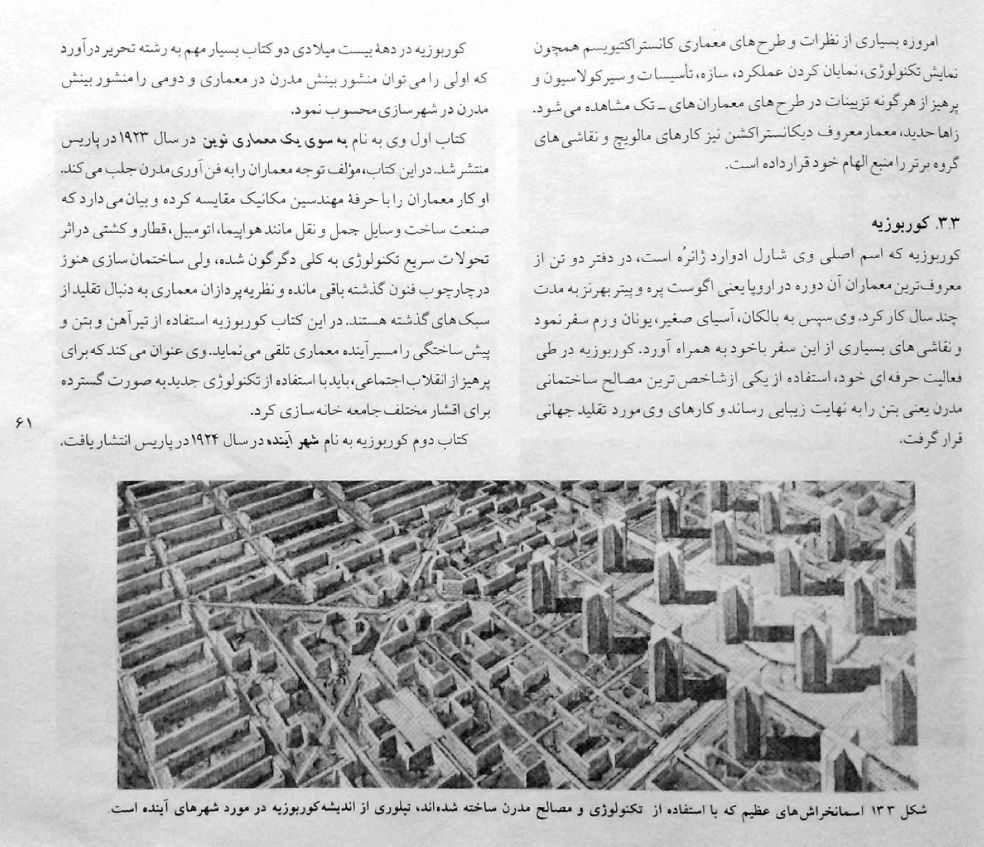 امروزه بسیاری از نظرات و طرح‌های معماری کانستراکتیویسم همچون
نمایش تکنولوژی، نمایان کردن عملکرد، سازه، تأسیسات و سیرکولاسیون و
پرهیز از هر گونه تزیینات در طرح های معماران های ـ تک مشاهده می‌شود.
زاها حدید، معمار معروف دیکانستراکشن نیز کارهای مالویچ و نقاشی های
گروه برتر را منبع الهام خود قرار داده است.
۳.۳. کوربوزیه
کوربوزیه که اسم اصلی وی شارل ادوارد ژانرُه است، در دفتر دو تن از
معروف‌ترین معماران آن دوره در اروپا یعنی اگوست پره و پیتر بهرنز به مدت
چند سال کار کرد. وی سپس به بالکان، آسیای صغیر، یونان و رم سفر نمود
و نقاشی های بسیاری از این سفر با خود به همراه آورد. کوربوزیه در طی
فعالیت حرفه ای خود، استفاده از یکی از شاخص ترین مصالح ساختمانی
مدرن یعنی بتن را به نهایت زیبایی رساند و کارهای وی مورد تقلید جهانی
قرار گرفت.
کوربوزیه در دههٔ بیست میلادی دو کتاب بسیار مهم به رشته تحریر درآورد
که اولی را می توان منشور بینش مدرن در معماری و دومی را منشور بینش
مدرن در شهرسازی محسوب نمود.
کتاب اول وی به نام به سوی یک معماری نوین در سال ۱۹۲۳ در پاریس
منتشر شد. در این کتاب، مؤلف توجه معماران را به فن آوری مدرن جلب می‌کند.
او کار معماران را با حرفهٔ مهندسین مکانیک مقایسه کرده و بیان می‌دارد که
صنعت ساخت وسایل حمل و نقل مانند هواپیما، اتومبیل، قطار و کشتی در اثر
تحولات سریع تکنولوژی به کلی دگرگون شده، ولی ساختمان سازی هنوز
در چارچوب فنون گذشته باقی مانده و نظریه پردازان معماری به دنبال تقلید از
سبک های گذشته هستند. در این کتاب کوربوزیه استفاده از تیرآهن و بتن و
پیش ساختگی را مسیر آینده معماری تلقی می نماید. وی عنوان می کند که برای
پرهیز از انقلاب اجتماعی، باید با استفاده از تکنولوژی جدید به صورت گسترده
برای اقشار مختلف جامعه خانه سازی کرد.
کتاب دوم کوربوزیه به نام شهر آینده در سال ۱۹۲۴ در پاریس انتشار یافت.
۶۱
شکل ۳ـ۱۳ اسمانخراش‌های عظیم که با استفاده از تکنولوژی و مصالح مدرن ساخته شده‌اند، تبلوری از اندیشه کوربوزیه در مورد شهرهای آینده است.